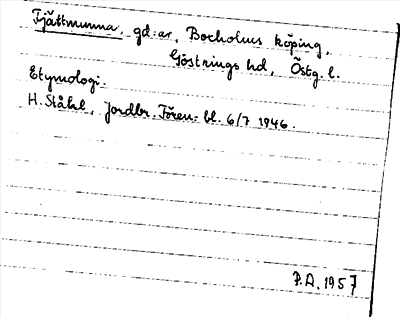 Fjättmunna, gd:ar, Borholms köping,
Göstrings hd, Östg. l.
Etymologi.
H. Ståhl, Jordbr. Fören. bl. 6/7 1946.
P.A. 1957